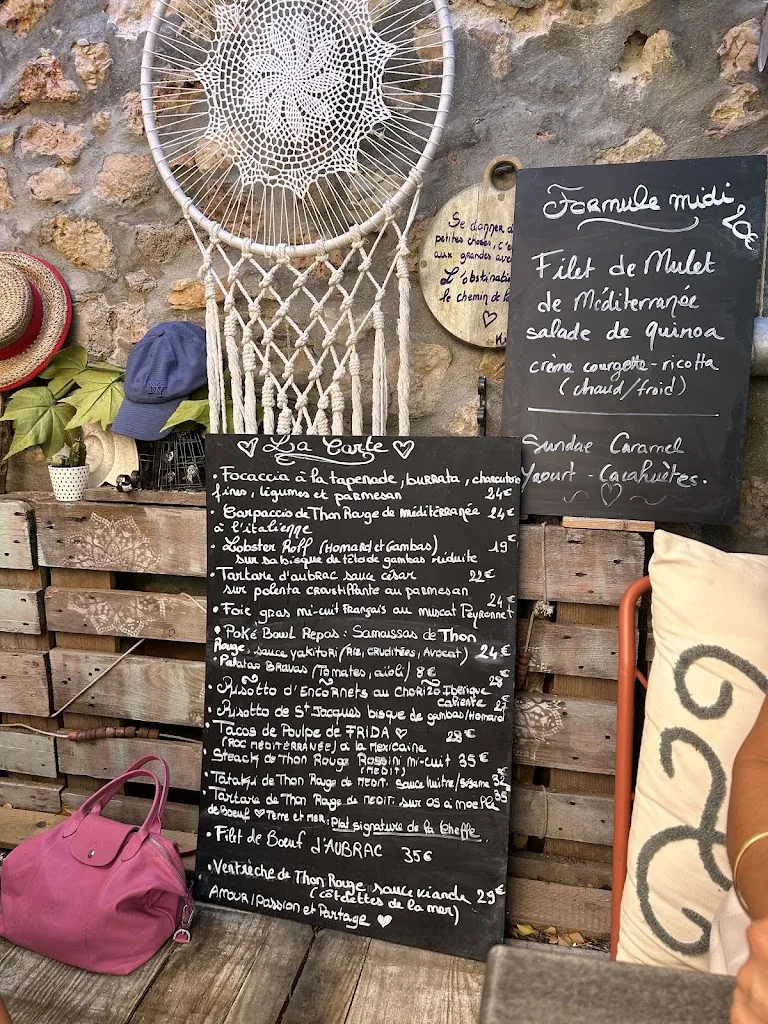 Se donner d
petites choses, c'e
aux grandes ave
L'obstinati
le chemin de l
Formule midi
20€
Filet de Mulet
de Méditerranée
salade de quinoa
crème courgette - ricotta
(chaud/froid)
Sundae Caramel
Yaourt - Cacahuètes.
La Carte
• Focaccia à la tapenade, burrata, charcuterie
fines, légumes et parmesan 24€
• Carpaccio de Thon Rouge de méditerranée 24€
à l'italienne
• Lobster Roll (Homard et Gambas) 19€
sur sa bisque de tête de gambas réduite
• Tartare d'aubrac sauce césar 22€
sur polenta croustillante au parmesan
• Foie gras mi-cuit Français au muscat Peyronnet 24€
• Poké Bowl Repos: Samoussas de Thon
Rouge, sauce yakitori (Riz, crudités, Avocat) 24€
• Patatas Bravas (Tomates, aïoli) 8€
• Risotto d'Encornets au Chorizo Ibérique 28€
Caliente
• Risotto de St Jacques bisque de gambas/Homard 27
• Tacos de Poulpe de FRIDA 28€
(ROC MÉDITERRANÉE) à la Mexicaine
• Steack de Thon Rouge Rossini mi-cuit 35€
(MEDIT)
• Tataki de Thon Rouge de MEDIT. sauce huitre/sésame 32€
• Tartare de Thon Rouge de MEDIT. sur os à moelle 35
de Boeuf Terre et Mer: Plat signature de la Cheffe.
• Filet de Boeuf d'AUBRAC 35€
• Ventrèche de Thon Rouge, sauce viande 29€
(côtelettes de la mer)
Amour/passion et Partage
NY